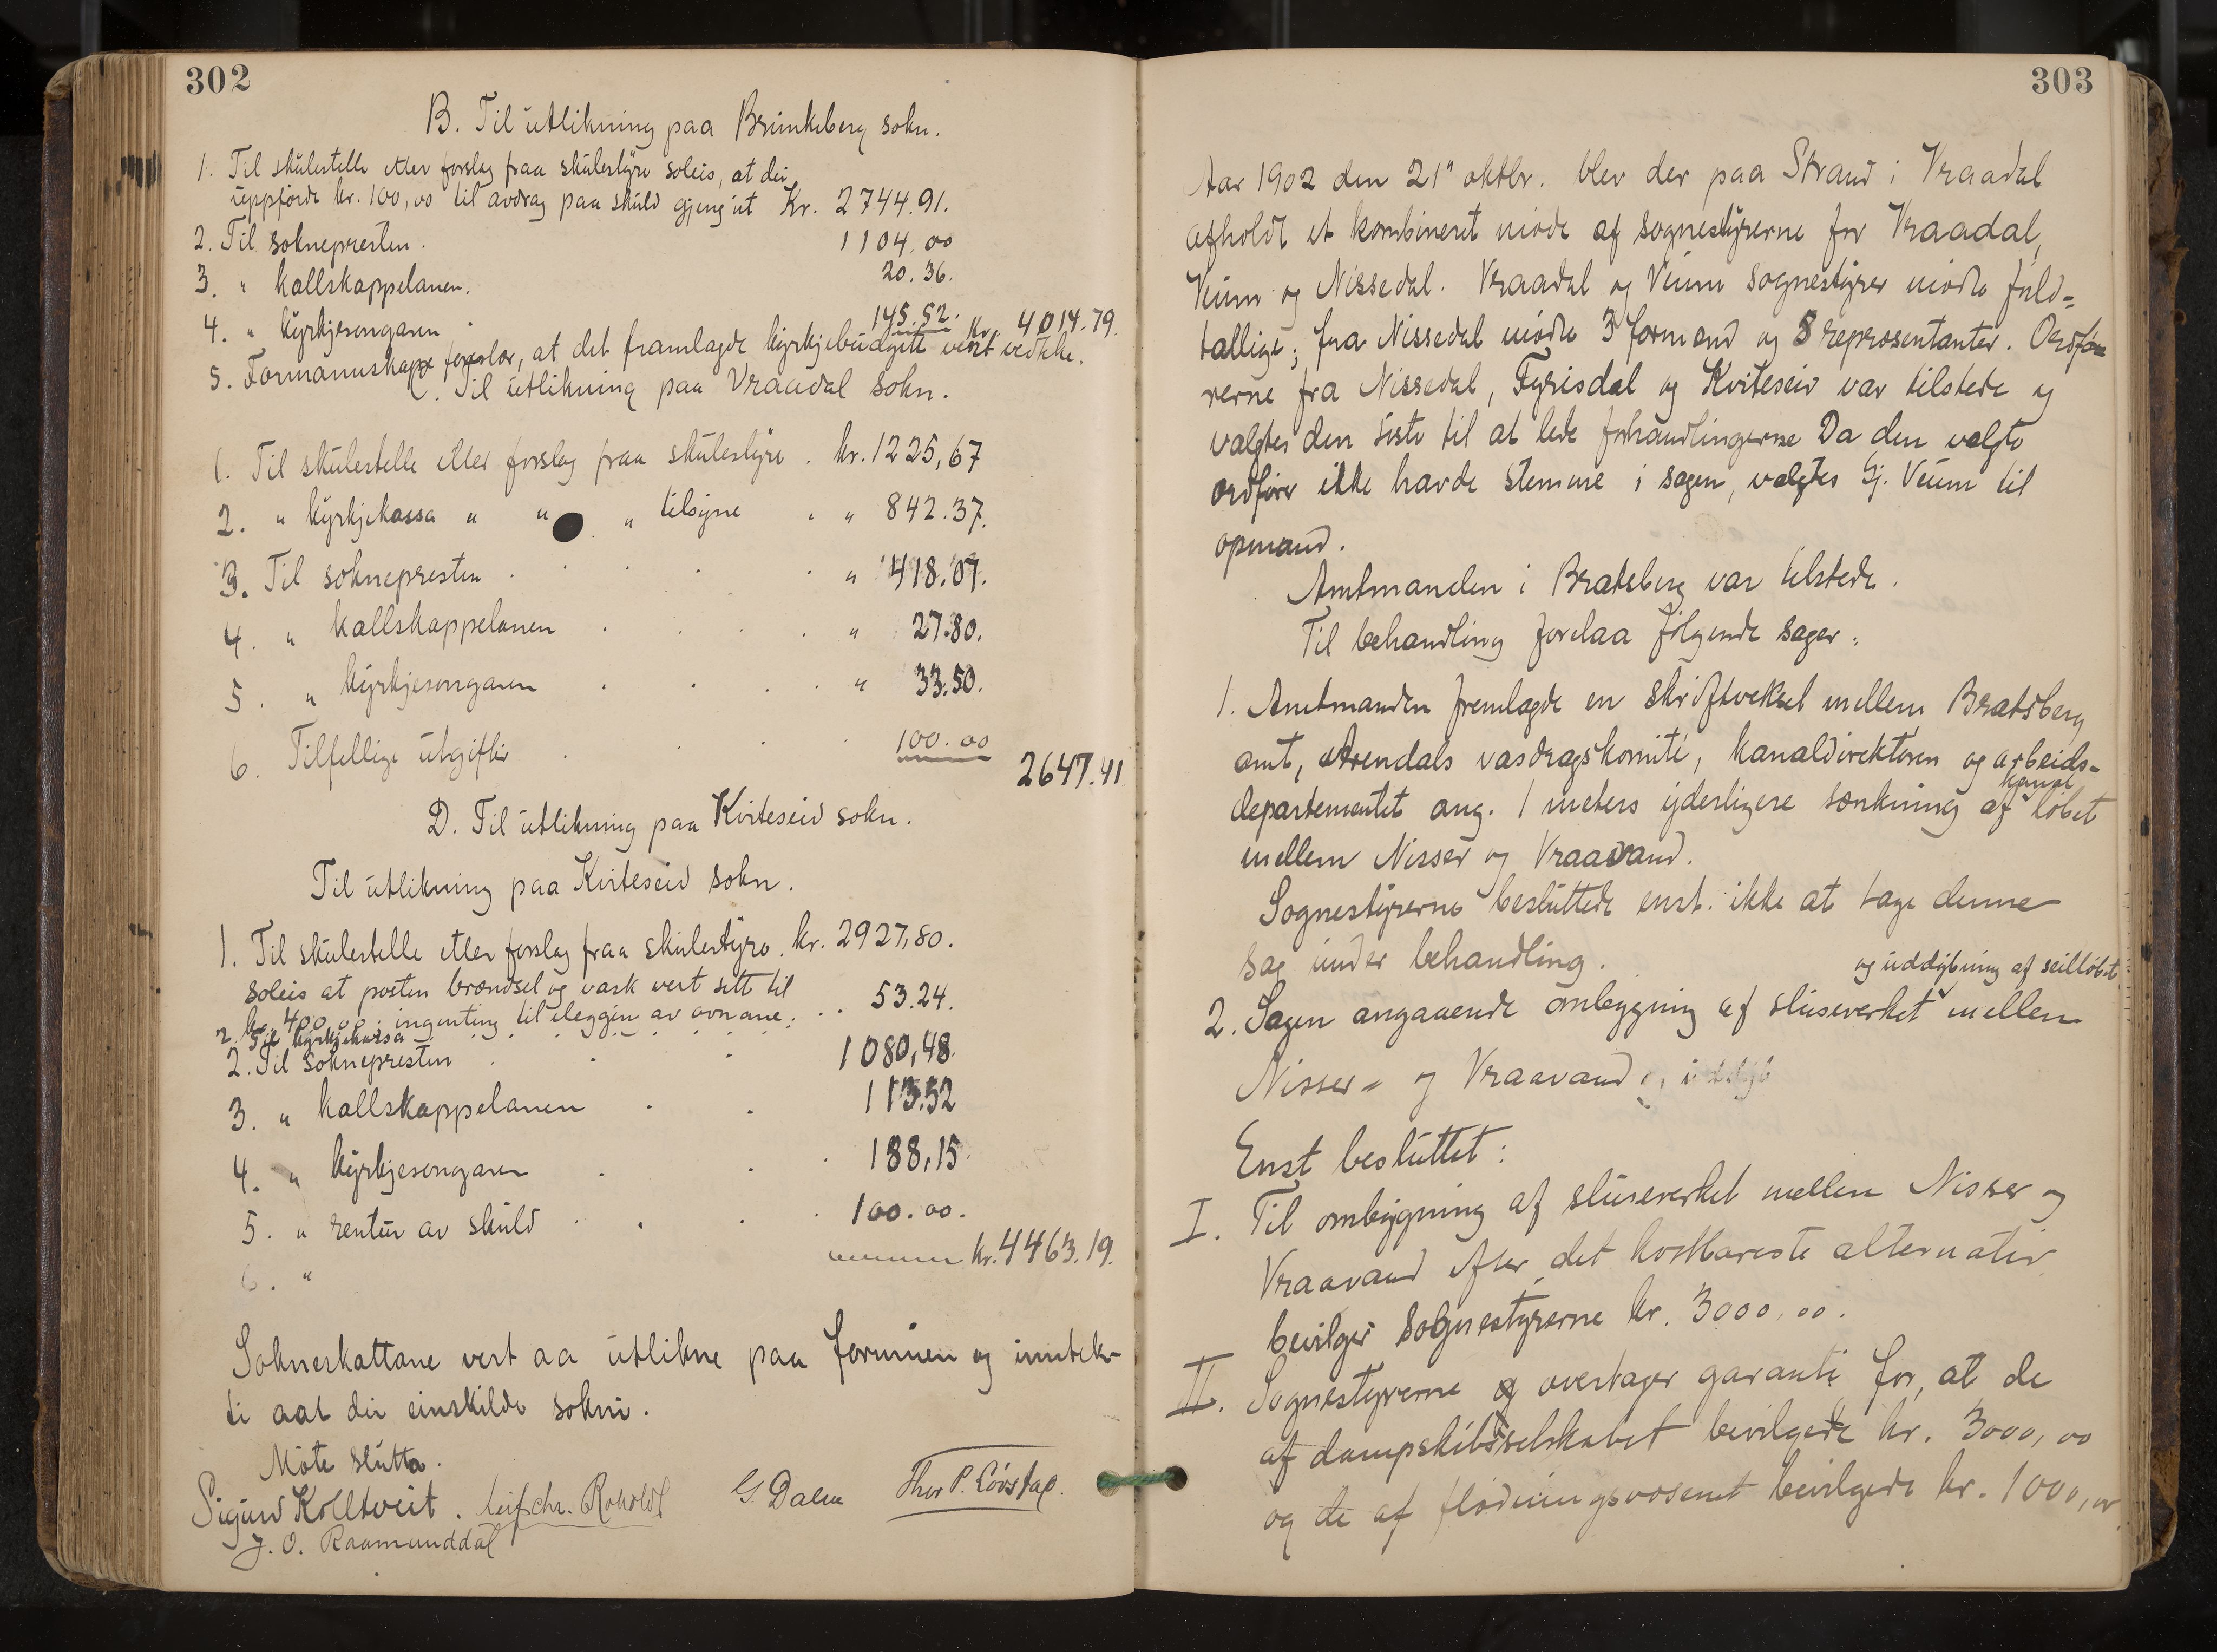 302
B. Til utlikning paa Brunkeberg sokn.
1. Til skulestelle etter forslag fraa skulestyre soleis, at dei
uppförde kr. 100,00 til avdrag paa skuld gjeng ut Kr. 2744.91.
2. Til soknepresten. 1104.00
3. " kallskappelanen. 20.36.
4. " kyrkjesongaren 145.52. kr. 4014.79.
5. Formannskape foreslær, at det framlagde kyrkjebudgett vert vedteke.
C. Til utlikning paa Vraadal sokn.
1. Til skulestelle etter forslag fraa skulestyre. kr. 1225,67
2. " kyrkjekassa " " " tilsyne . " 842.37.
3. Til soknepresten . . . . . " 418.07.
4. " kallskappelanen . . . . " 27.80.
5. " kyrkjesongaren . . . . " 33.50.
6. Tilfellige utgifter . . . . 100.00
2647.41
D. Til utlikning paa Kviteseid sokn.
Til utlikning paa Kviteseid sokn.
1. Til skulestelle etter forslag fraa skulestyre. kr. 2927,80.
soleis at posten brændsel og vask vert sett til
kr. 400,00. ingenting til ileggin av ovnane.
2. Til kyrkjekassa . . . . . 53.24.
2. Til soknepresten . . . 1080,48.
3. " kallskappelanen . . 113.52
4. " kyrkjesongaren . . . 188,15.
5. " rentur av skuld . . . . 100.00.
kr. 4463.19.
6. "
Sokneskattane vert aa utlikne paa formuen og inntek-
ti aat dei einskilde sokni.
Möte slutta.
Sigurd Kolltveit. Leif chr. Roholdt G. Dalen Thor P. Lövstad.
J. O. Raamunddal
303
Aar 1902 den 21" oktbr. blev der paa Strand i Vraadal
afholdt et kombineret möde af sognestyrerne for Vraadal,
Veum og Nissedal. Vraadal og Veum sognestyrer mödte fuld-
tallige; fra Nissedal mödte 3 formænd og 8 repræsentanter. Ordfö-
rerne fra Nissedal, Fyrisdal og Kviteseid var tilstede og
valgtes den siste til at lede forhandlingerne Da den valgte
ordförer ikke havde stemme i sagen, valgtes Gj. Veum til
opmand.
Amtmanden i Bratsberg var tilstede.
Til behandling forelaa fölgende sager:
1. Amtmanden fremlagde en skriftveksel mellem Bratsberg
amt, Arendals vasdragskomité, kanaldirektören og arbeids-
departementet ang. 1 meters yderligere sænkning af kanallöbet
mellem Nisser og Vraavand.
Sognestyrerne besluttede enst. ikke at tage denne
sag under behandling.
2. Sagen angaaende ombygning af sluseverket og uddybning af seillöbet mellem
Nisser- og Vraavand
Enst besluttet:
I. Til ombygning af sluseverket mellem Nisser og
Vraavand efter det kostbareste alternativ
bevilger sognestyrerne kr. 3000,00.
II. Sognestyrerne overtager garanti for, at de
af dampskibsselskabet bevilgede kr. 3000,00
og de af flödningsvæsenet bevilgede kr. 1000,00